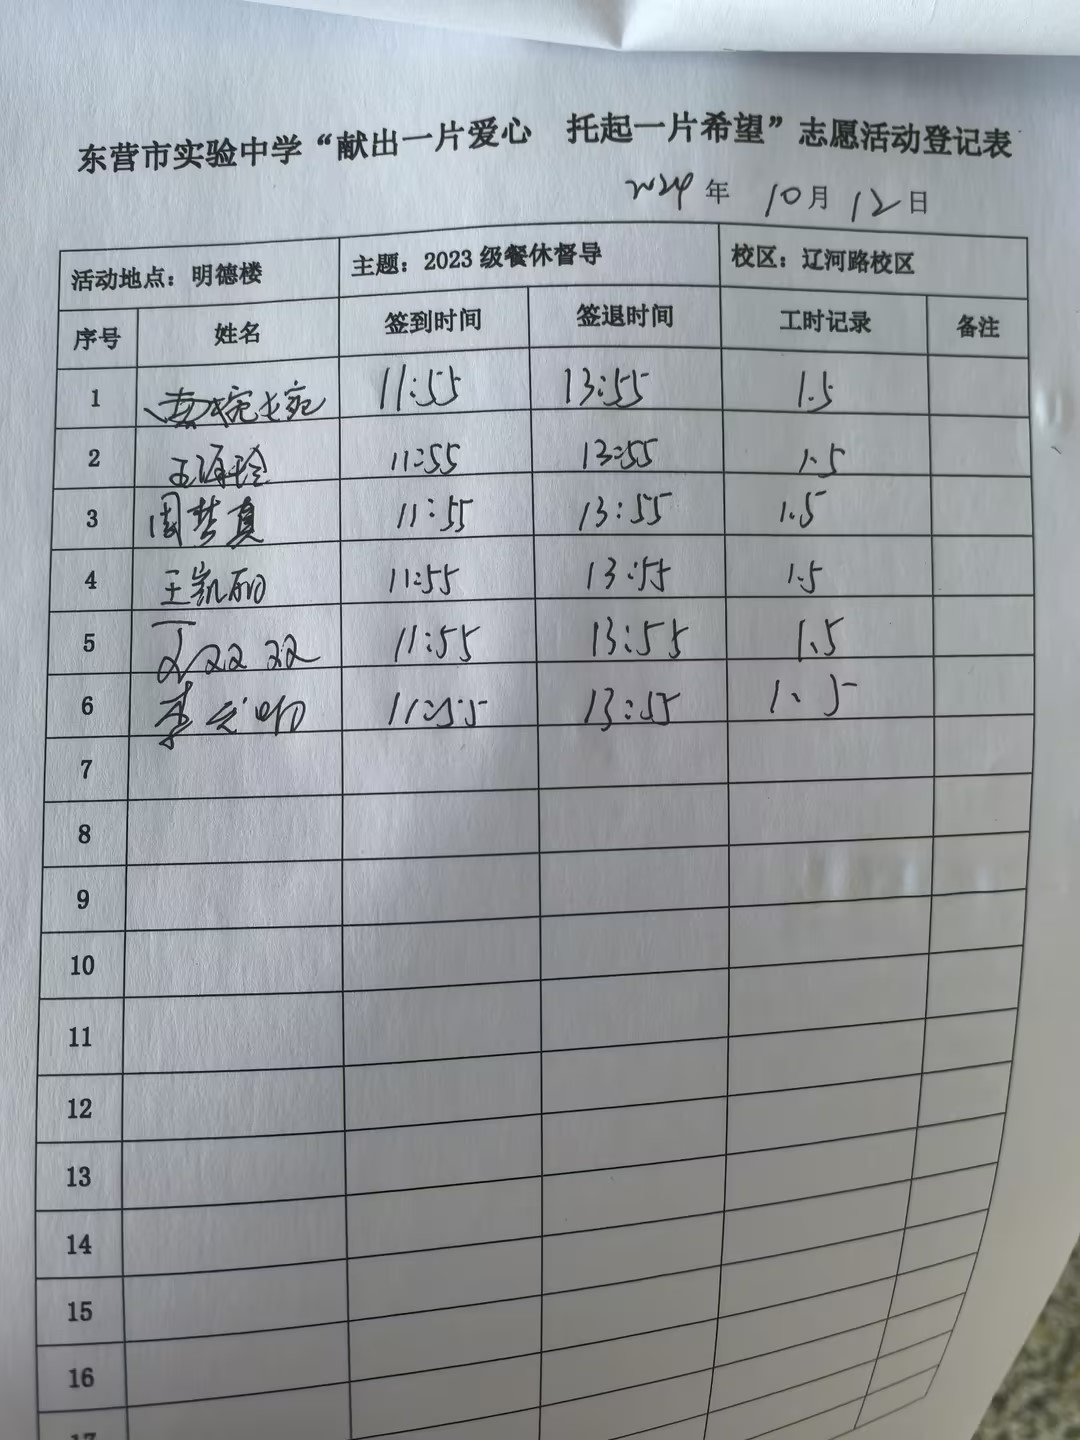 东营市实验中学“献出一片爱心 托起一片希望”志愿活动登记表
2024年 10月12日
活动地点：明德楼 主题：2023级餐休督导 校区：辽河路校区
序号 姓名 签到时间 签退时间 工时记录 备注
1 黄婉婉 11:55 13:55 1.5
2 王海玲 11:55 13:55 1.5
3 周梦真 11:55 13:55 1.5
4 王凯丽 11:55 13:55 1.5
5 丁双双 11:55 13:55 1.5
6 李 11:55 13:55 1.5
7
8
9
10
11
12
13
14
15
16
17